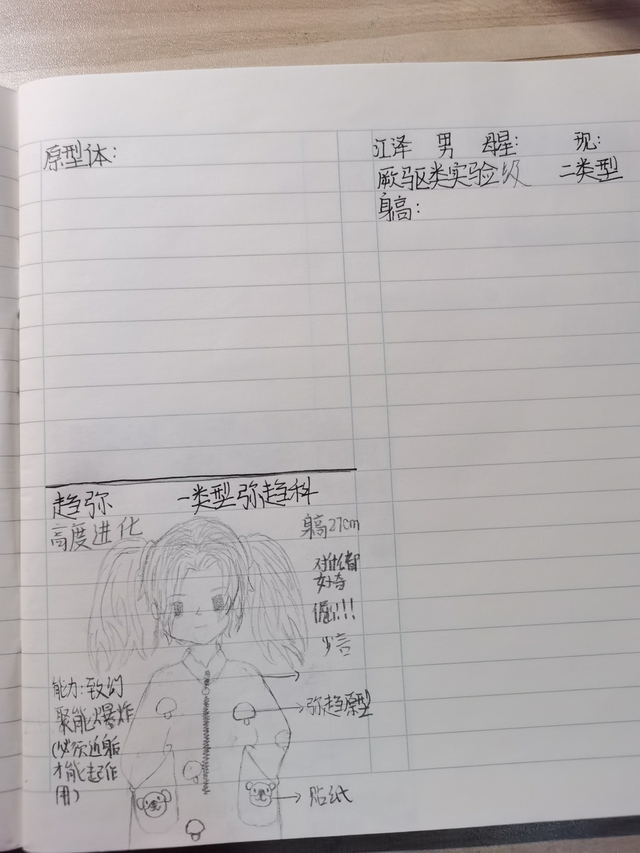 原型体:
江泽 男 母星: 现:
厥驱类实验级 二类型
身高:
趋弥 一类型弥趋科
高度进化
身高27cm
对什么都
好奇
倔!!!
少言
能力:致幻
聚能爆炸
(必须近身后
才能起作
用)
弥趋原型
贴纸